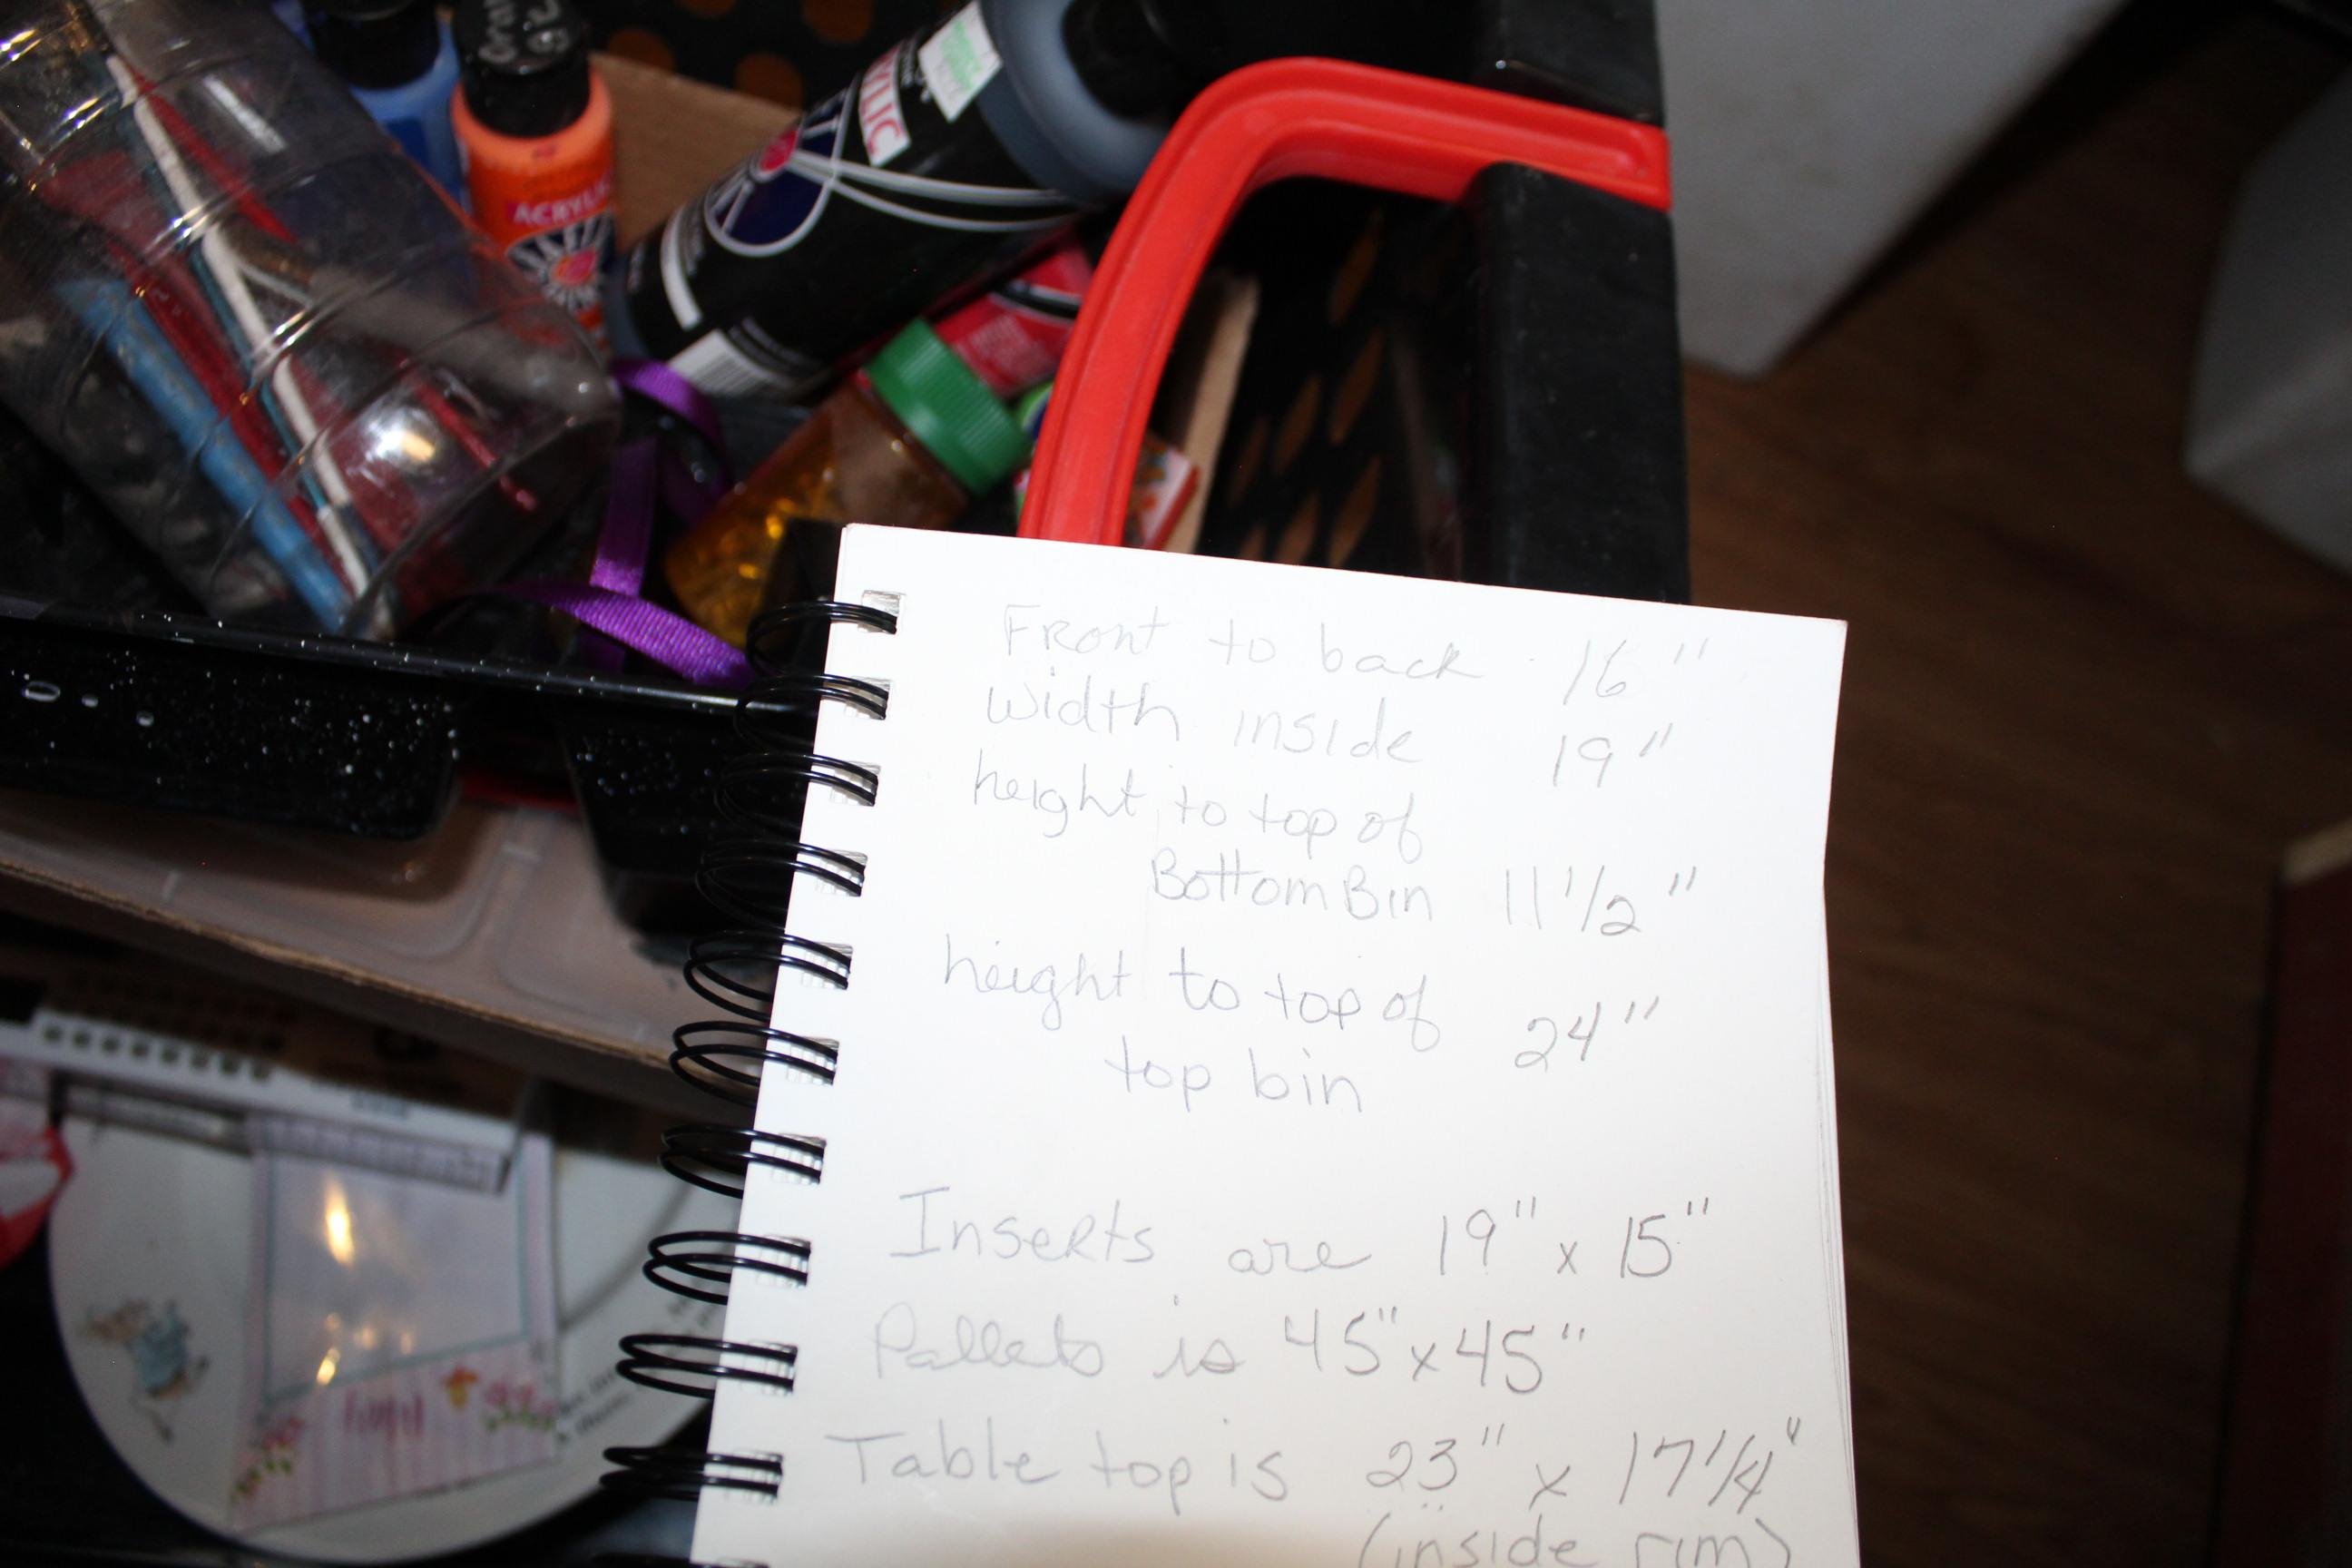 ACRYLIC
YLIC
Front to back 16"
width inside 19"
height to top of
Bottom Bin 11 1/2"
height to top of
top bin 24"
Inserts are 19" x 15"
Pallets is 45" x 45"
Table top is 23" x 17 1/4"
(inside rim)